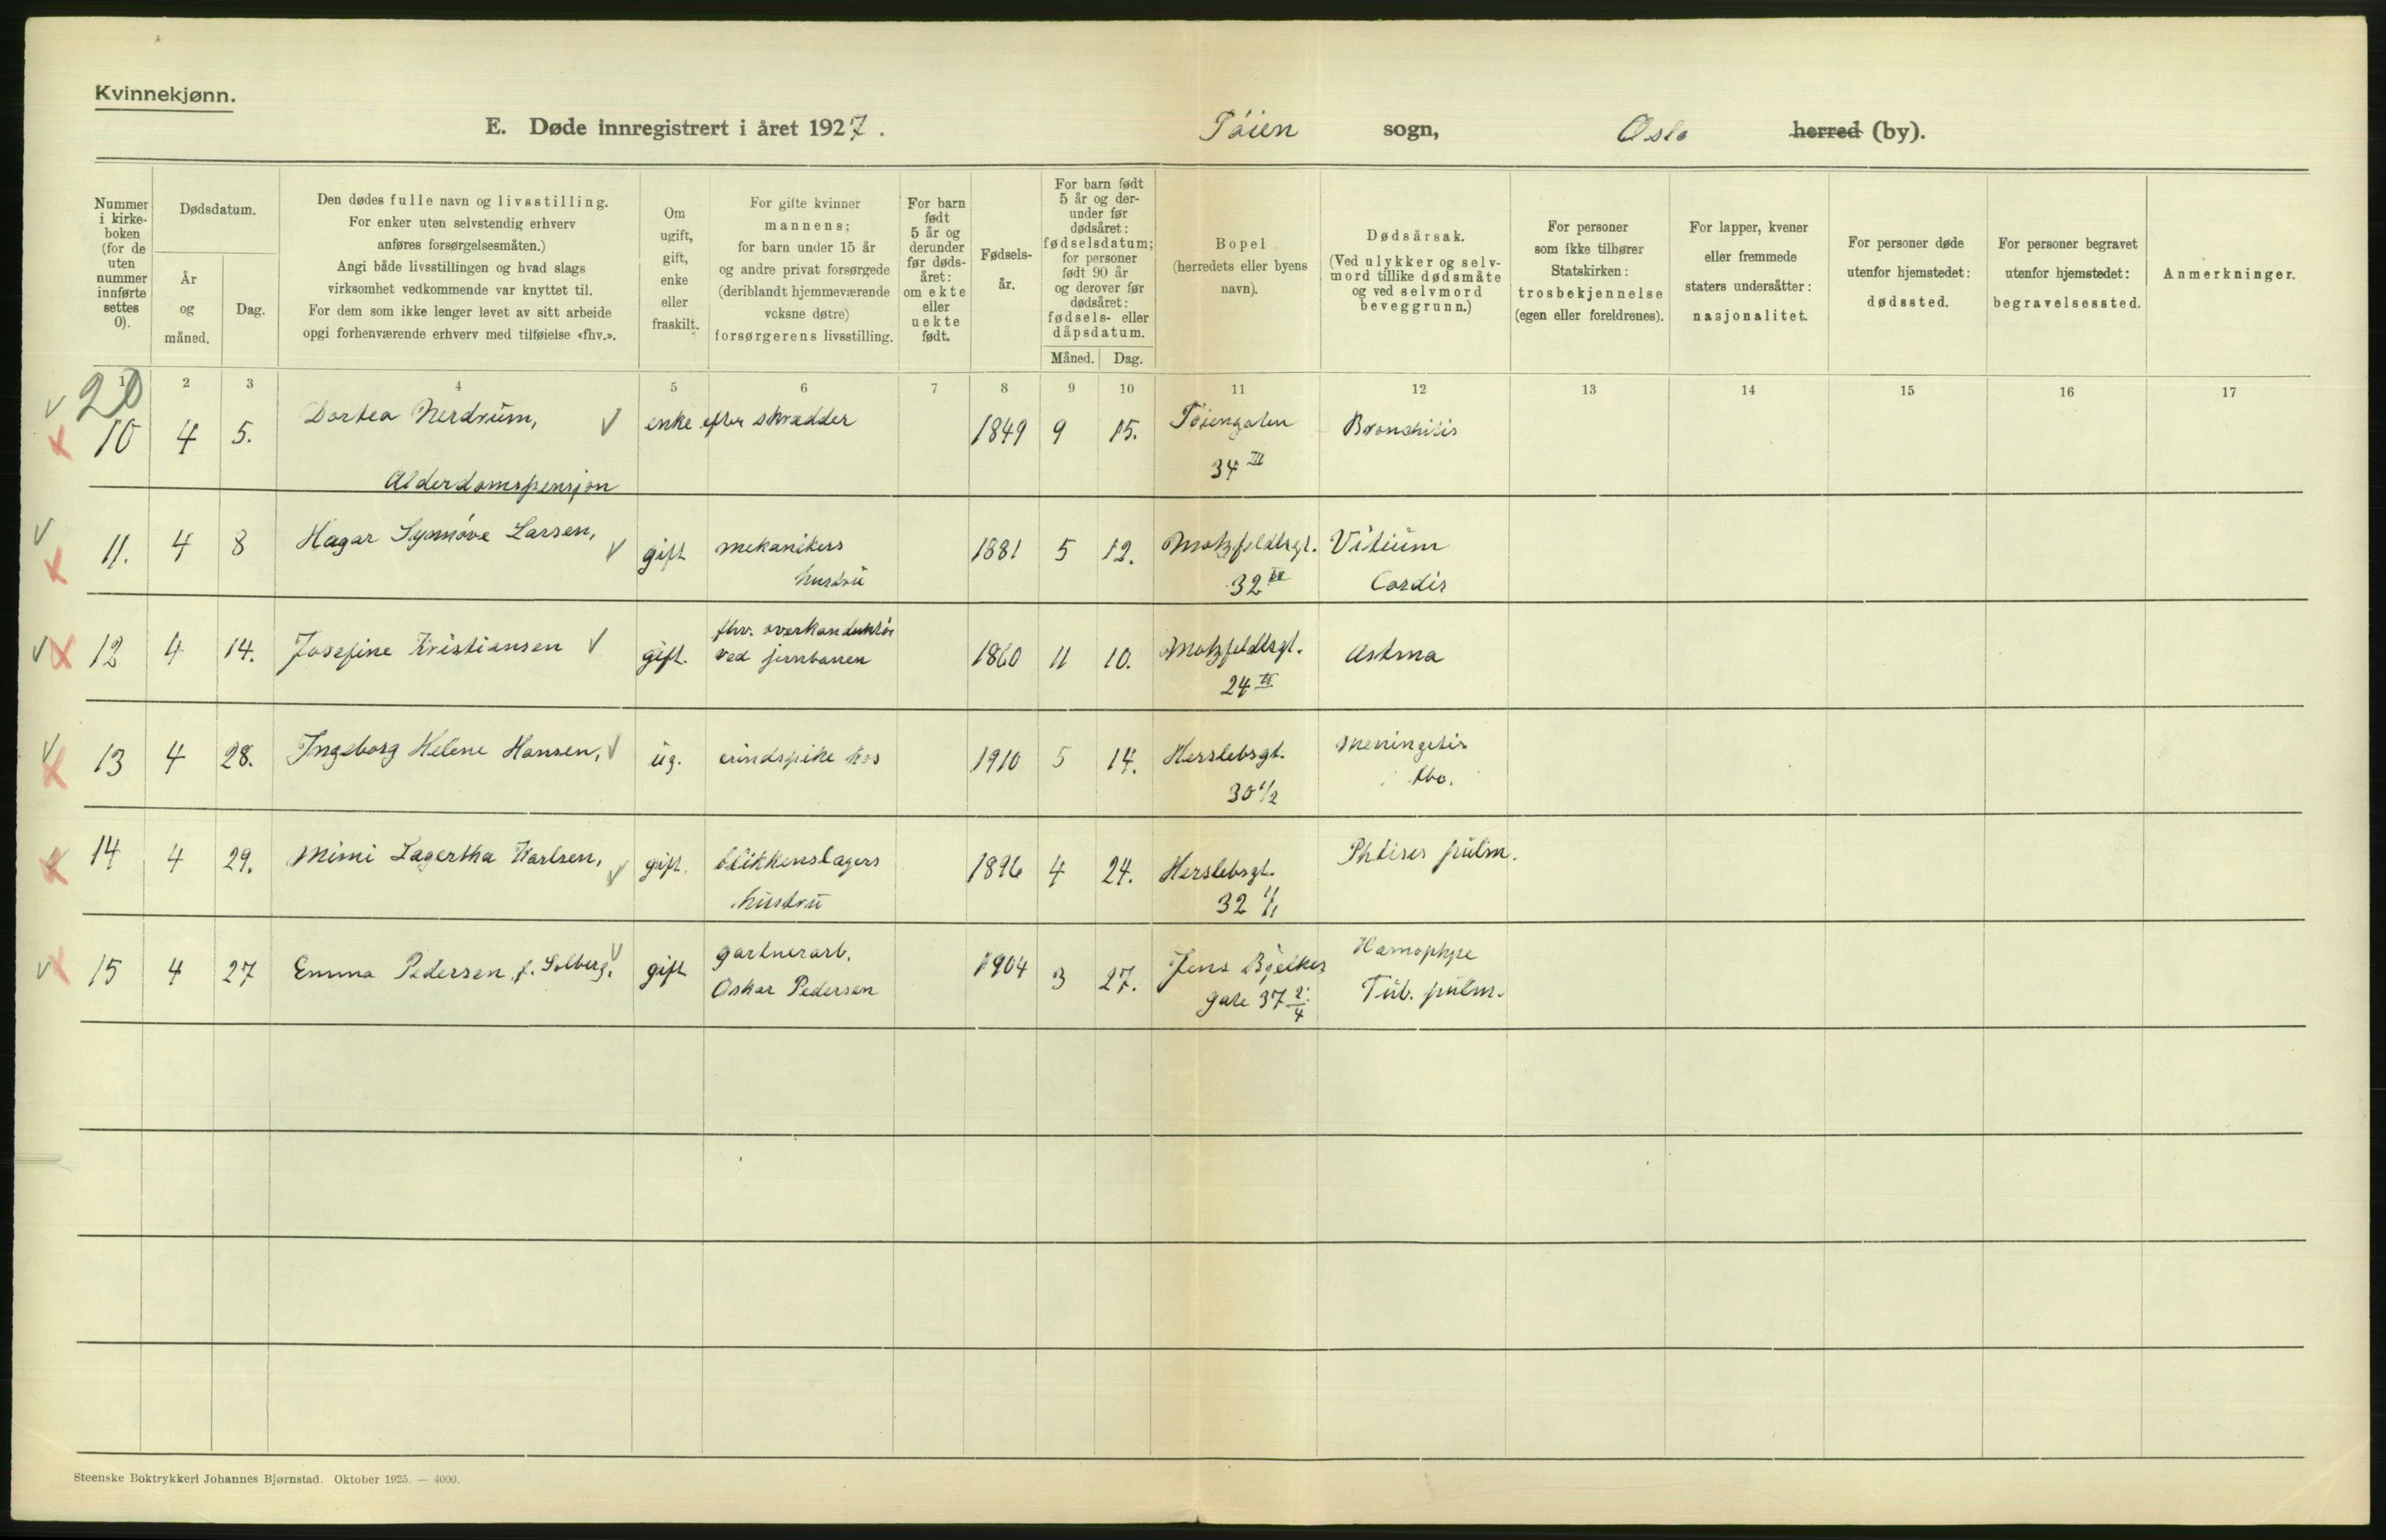 Kvinnekjønn.
E. Døde innregistrert i året 1927.
Tøien sogn, Oslo herred (by).
Nummer i kirke-boken (for de uten nummer innførte settes 0).
Dødsdatum.
År og måned.
Dag.
Den dødes fulle navn og livsstilling.
For enker uten selvstendig erhverv
anføres forsørgelsesmåten.)
Angi både livsstillingen og hvad slags
virksomhet vedkommende var knyttet til.
For dem som ikke lenger levet av sitt arbeide
opgi forhenværende erhverv med tilføielse «fhv.».
Om ugift, gift, enke eller fraskilt.
For gifte kvinner
mannens;
for barn under 15 år
og andre privat forsørgede
(deriblandt hjemmeværende
voksne døtre)
forsørgerens livsstilling.
For barn født 5 år og derunder før døds-året: om ekte eller uekte født.
Fødsels-år.
For barn født
5 år og der-
under før
dødsåret:
fødselsdatum;
for personer
født 90 år
og derover før
dødsåret:
fødsels- eller
dåpsdatum.
Måned. Dag.
Bopel
(herredets eller byens
navn).
Dødsårsak.
(Ved ulykker og selv-
mord tillike dødsmåte
og ved selvmord
beveggrunn.)
For personer
som ikke tilhører
Statskirken:
trosbekjennelse
(egen eller foreldrenes).
For lapper, kvener
eller fremmede
staters undersåtter:
nasjonalitet.
For personer døde
utenfor hjemstedet:
dødssted.
For personer begravet
utenfor hjemstedet:
begravelsessted.
Anmerkninger.
1 2 3 4 5 6 7 8 9 10 11 12 13 14 15 16 17
20
10 4 5. Dortea Nerdrum, enke efter skrædder 1849 9 15. Tøiengaten Bronchitis
34 III
Alderdomspensjon
11. 4 8 Hagar Synnøve Larsen, gift mekanikers 1881 5 12. Motzfeldtsgt. Vitium
hustru 32 IV Cordis
fhv. overkonduktør
12 4 14. Josefine Kristiansen gift. ved jernbanen 1860 11 10. Motzfeldtsgt. Astma
24
13 4 28. Ingeborg Helene Hansen, ug. erindspike hos 1910 5 14. Herslebsgt. Meningitis
30 1/2 tbc.
14 4 29. Mimi Lagertha Karlsen, gift. blikkenslagers 1896 4 24. Herslebsgt. Phtises pulm.
hustru 32
15 4 27 Emma Pedersen f. Solberg. gift gartnerarb. 1904 3 27. Jens Bjelkes
Oskar Pedersen gate 37 2/4 Tub. pulm.
Steenske Boktrykkeri Johannes Bjørnstad. Oktober 1925. — 4000.